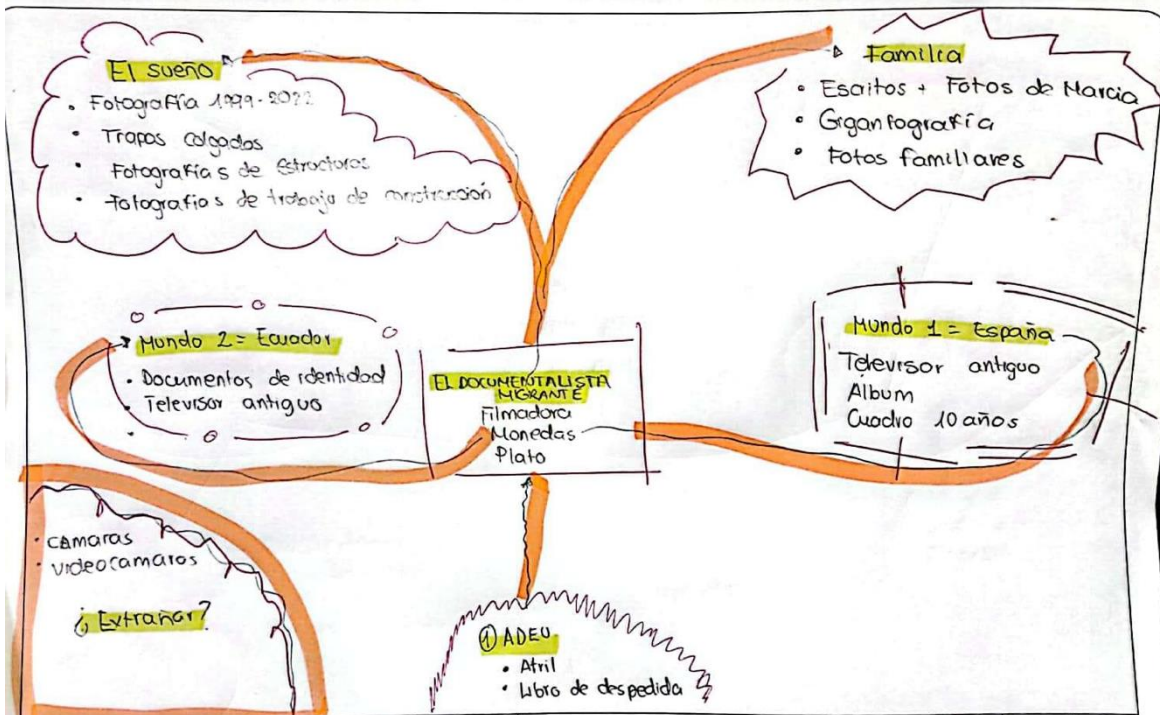 El sueño
• Fotografía 1999-2022
• Trapos colgados
• Fotografías de estructuras
• Fotografías de trabajo de construcción
Familia
• Escritos + Fotos de Marcia
• Gigantografía
• Fotos familiares
Mundo 2 = Ecuador
• Documentos de identidad
• Televisor antiguo
EL DOCUMENTALISTA
MIGRANTE
Filmadora
Monedas
Plato
Mundo 1 = España
Televisor antiguo
Álbum
Cuadro 10 años
• CÁMARAS
• VIDEOCAMARAS
¿Extrañar?
① ADEU
• Atril
• Libro de despedida